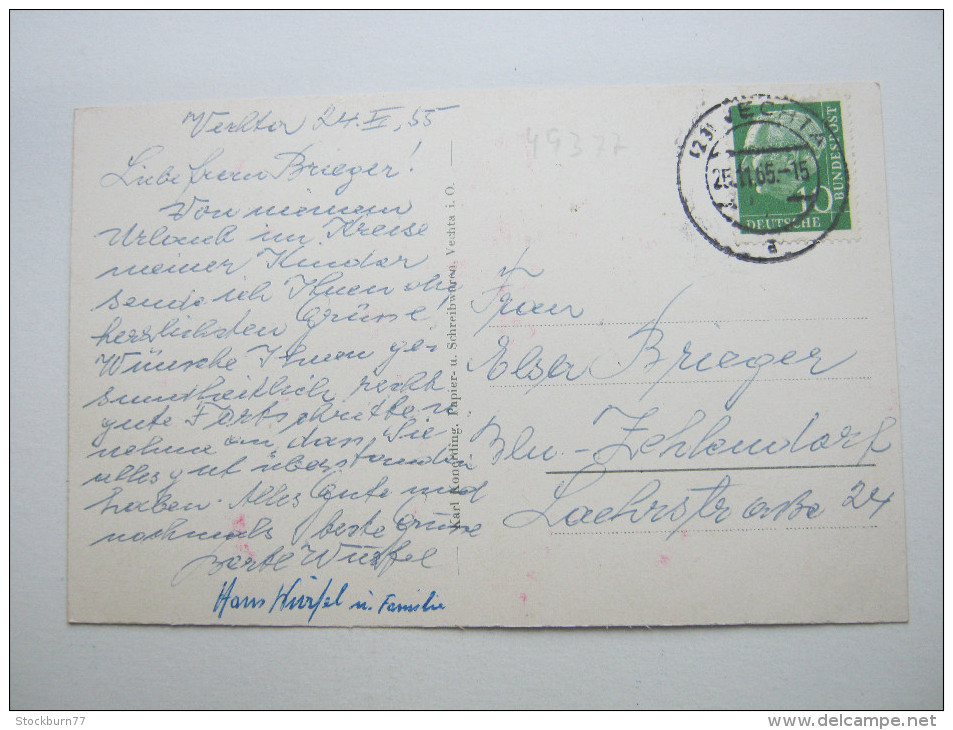 Vechta 24. II, 55
Liebe Frau Brieger!
Von meinem
Urlaub im Kreise
meiner Kinder
sende ich Ihnen
herzlichsten Grüsse,
Wünsche Ihnen ge-
sundheitlich recht
gute Fortschritte u.
nehme an, dass Sie
alles gut überstanden
haben. Alles Gute und
nochmals beste Grüsse
Würfel
Hans Würfel u. Familie
Karl Konerding, Papier- u. Schreibwaren, Vechta i. O.
49377
(23) VECHTA
25.11.65.-15
a
10
DEUTSCHE
BUNDESPOST
Frau
Elsa Brieger
Bln-Zehlendorf
Laehrstrasse 24
Stockburn77
www.delcampe.net